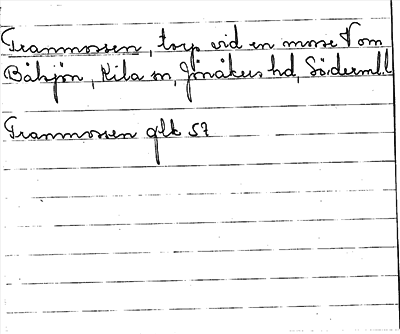 Tranmossen, torp vid en mosse V om
Båsjön, Kila sn, Jönåkers hd, Södermll
Tranmossen glk 57